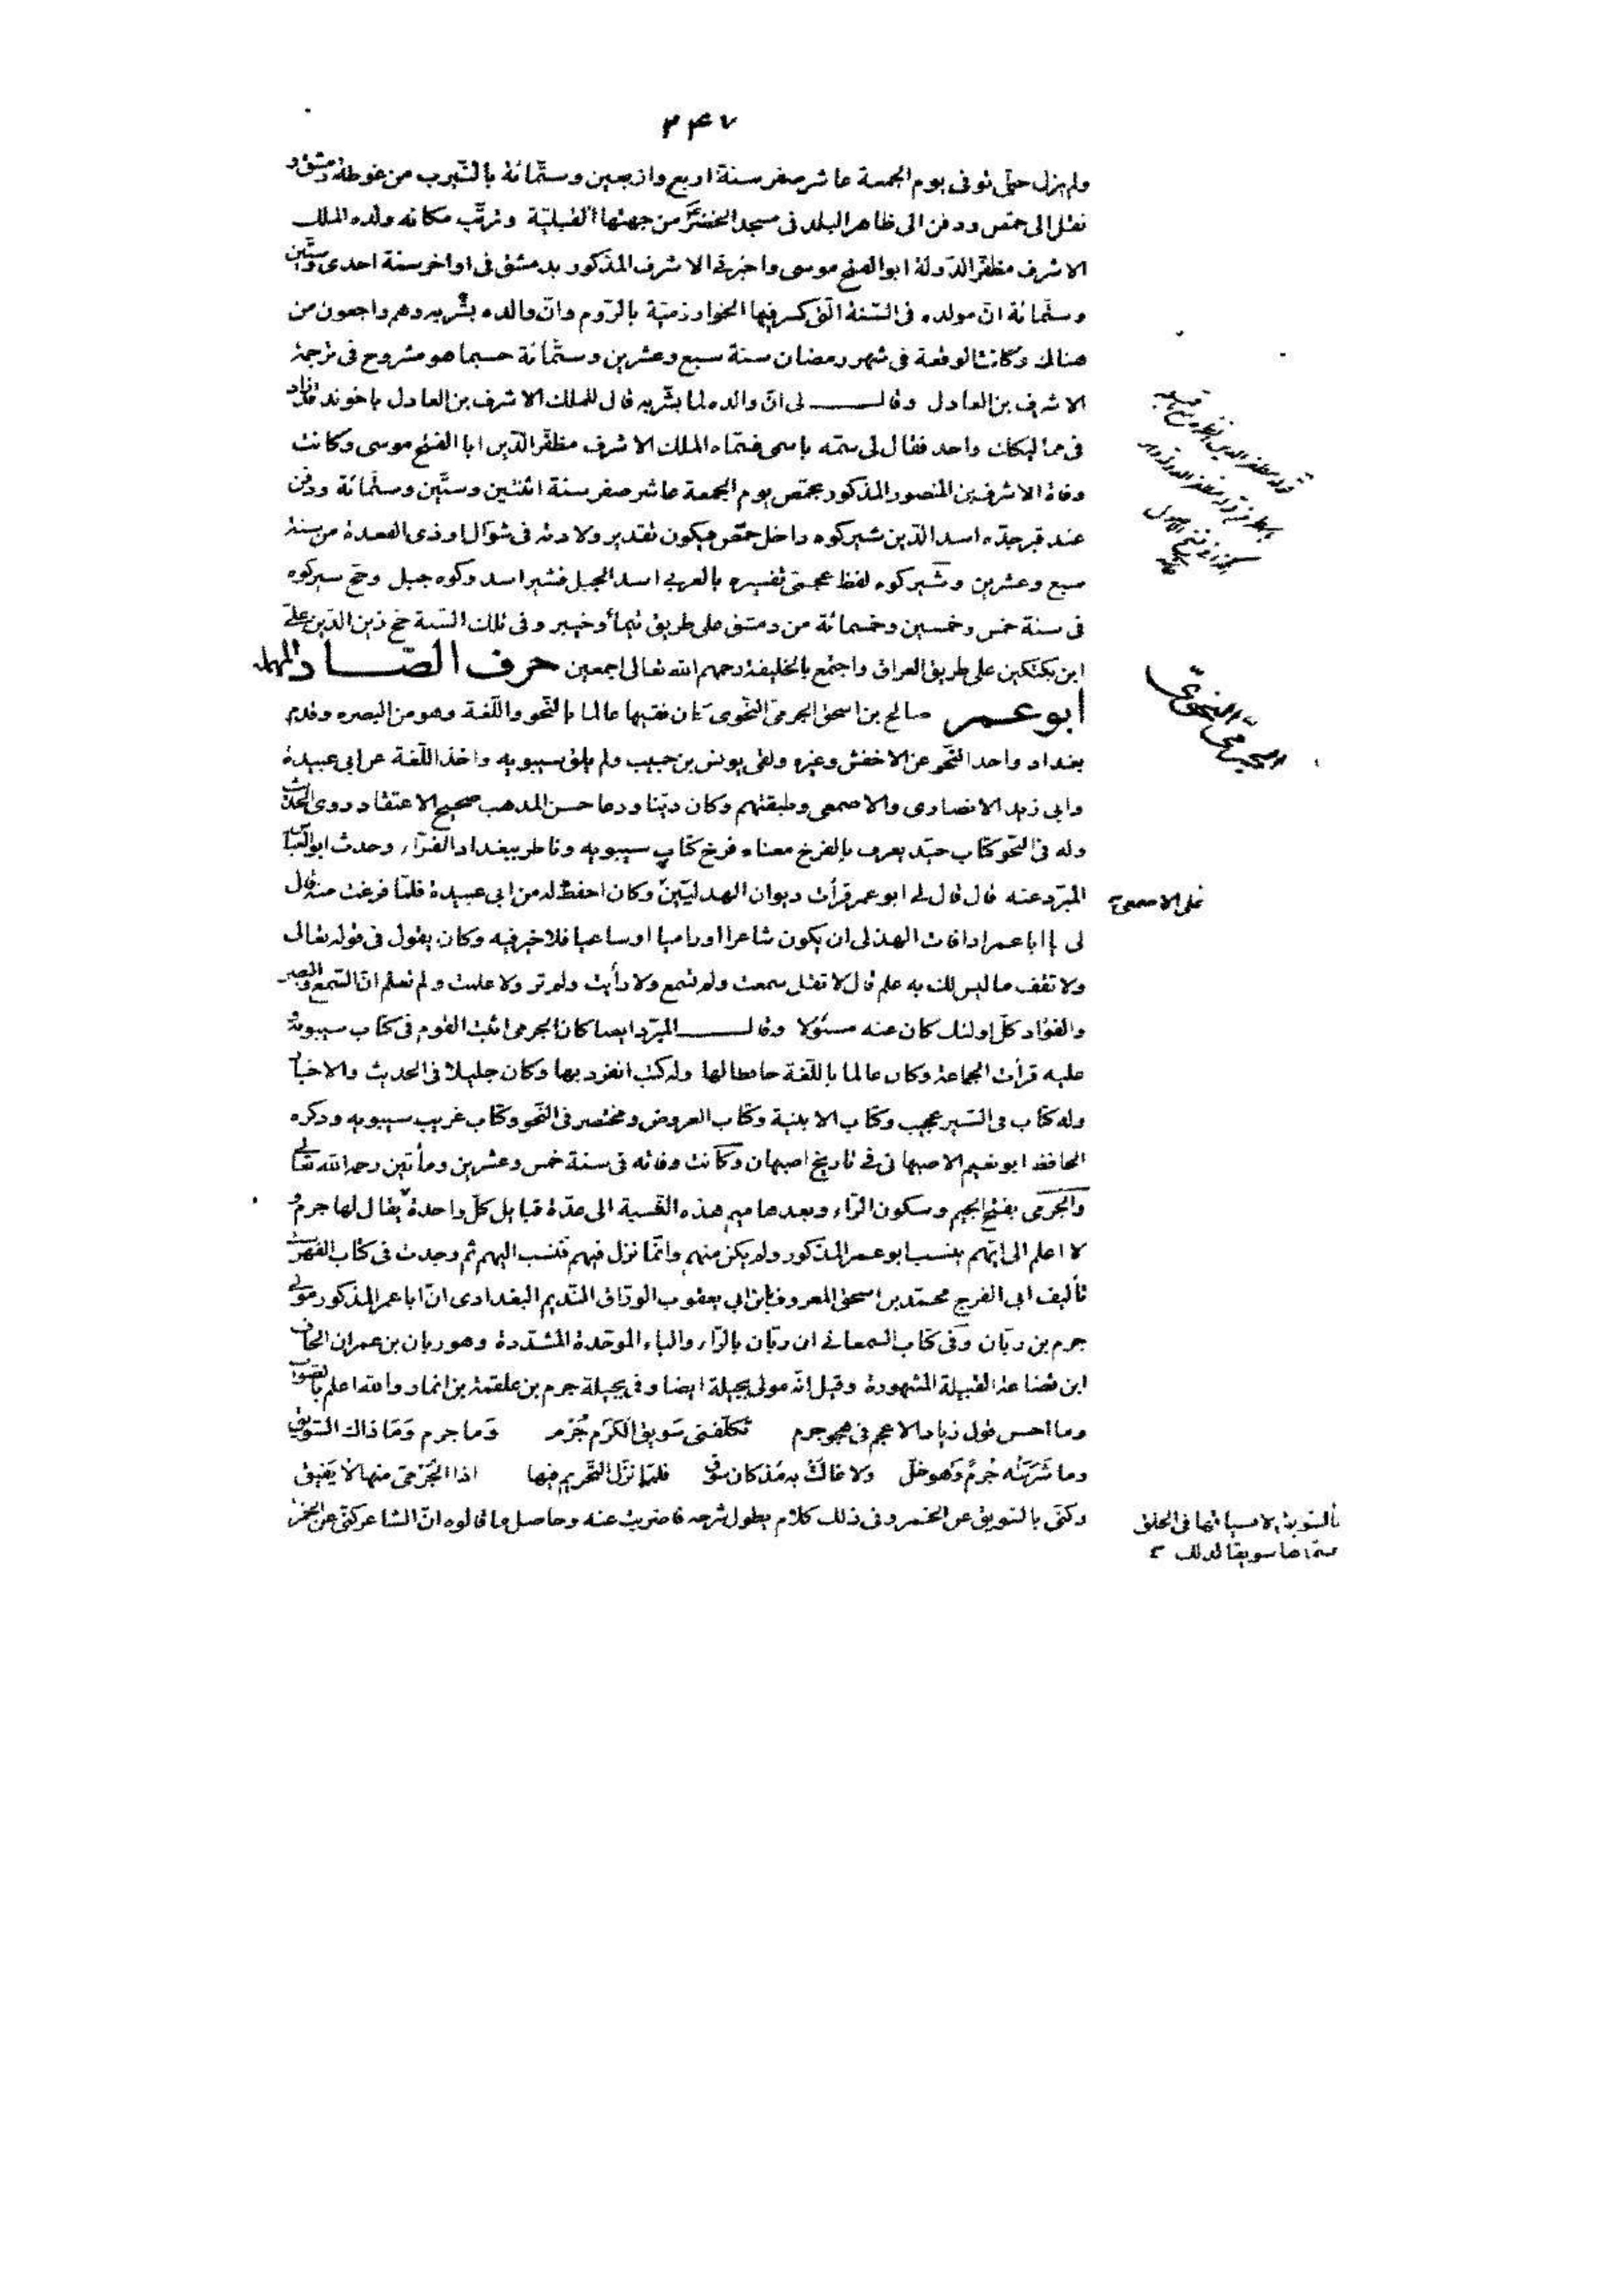 ٢٤٧
ولم يزل حتى توفى يوم الجمعة عاشر صفر سنة اربع واربعين وستمائة بالنيرب من غوطة دمشق و
نقل الى حمص ودفن الى ظاهر البلد فى مسجد الخضر من جهتها القبلية وترتب مكانه ولده الملك
الاشرف مظفر الدولة ابو الفتح موسى واخبرنى الاشرف المذكور بدمشق فى اواخر سنة احدى وستين
وستمائة ان مولده فى السنة التى كسر فيها الخوارزمية بالروم وان والده بشر به وهم راجعون من
هناك وكانت الوقعة فى شهر رمضان سنة سبع وعشرين وستمائة حسبما هو مشروح فى ترجمة
الاشرف بن العادل وقال لى ان والده لما بشر به قال للملك الاشرف بن العادل ياخوند قد زاد
فى مماليكك واحد فقال لى سمه باسمى فسماه الملك الاشرف مظفر الدين ابا الفتح موسى وكانت
وفاة الاشرف بن المنصور المذكور بحمص يوم الجمعة عاشر صفر سنة اثنتين وستين وستمائة ودفن
عند قبر جده اسد الدين شيركوه داخل حمص فيكون تقدير ولادته فى شوال او ذى القعدة من سنة
سبع وعشرين وشيركوه لفظ عجمى تفسيره بالعربى اسد الجبل فشير اسد وكوه جبل وحج شيركوه
فى سنة خمس وخمسين وخمسمائة من دمشق على طريق تيماء وخيبر وفى تلك السنة حج زين الدين على
ابن بكتكين على طريق العراق واجتمع بالخليفة رحمهم الله تعالى اجمعين حرف الصاد المهملة
ابو عمر صالح بن اسحق الجرمى النحوى كان فقيها عالما بالنحو واللغة وهو من البصره وقدم
الجرمى النحوى
بغداد واخذ النحو عن الاخفش وغيره ولقى يونس بن حبيب ولم يلق سيبويه واخذ اللغة عن ابى عبيدة
وابى زيد الانصارى والاصمعى وطبقتهم وكان دينا ورعا حسن المذهب صحيح الاعتقاد روى الحديث
وله فى النحو كتاب جيد يعرف بالفرخ معناه فرخ كتاب سيبويه وناظر ببغداد الفراء وحدث ابو العباس
المبرد عنه قال قال لى ابو عمر قرأت ديوان الهذليين وكان احفظ له من ابى عبيدة فلما فرغت منه قال
على الاصمعى
لى يا ابا عمر اذا فات الهذلى ان يكون شاعرا او راميا او ساعيا فلا خير فيه وكان يقول فى قوله تعالى
ولا تقف ما ليس لك به علم قال لا تقل سمعت ولم تسمع ولا رأيت ولم تر ولا علمت ولم تعلم ان السمع والبصر
والفؤاد كل اولئك كان عنه مسئولا وقال المبرد ايضا كان الجرمى اثبت القوم فى كتاب سيبويه و
عليه قرأت الجماعة وكان عالما باللغة حافظا لها وله كتب انفرد بها وكان جليلا فى الحديث والاخبار
وله كتاب فى السير عجيب وكتاب الابنية وكتاب العروض ومختصر فى النحو وكتاب غريب سيبويه وذكره
الحافظ ابو نعيم الاصبهانى فى تاريخ اصبهان وكانت وفاته فى سنة خمس وعشرين ومأتين رحمه الله تعالى
والجرمى بفتح الجيم وسكون الراء وبعدها ميم هذه النسبة الى عدة قبايل كل واحدة يقال لها جرم و
لا اعلم الى ايهم ينسب ابو عمر المذكور ولم يكن منهم وانما نزل فيهم فنسب اليهم ثم وجدت فى كتاب الفهرست
تأليف ابى الفرج محمد بن اسحق المعروف بابن ابى يعقوب الوراق النديم البغدادى ان ابا عمر المذكور مولى
جرم بن ربان وفى كتاب السمعانى ان ربان بالراء والباء الموحدة المشددة وهو ربان بن عمران الحاف
ابن قضاعة القبيلة المشهورة وقيل انه مولى بجيلة ايضا وفى بجيلة جرم بن علقمة بن انمار والله اعلم بالصواب
وما احسن قول زياد الاعجم فى هجو جرم تكلفنى سويق الكرم جرم وما جرم وما ذاك السويق
وما شربته جرم وهو حل ولا غالت به مذ كان سوق فلما نزل التحريم فيها اذا الجرمى منها لا يفيق
وكنى بالسويق عن الخمر وفى ذلك كلام يطول شرحه فاضربت عنه وحاصل ما قالوه ان الشاعر كنى عن الخمر
بالسويق لانسياقها فى الحلق
سماها سويقا لذلك